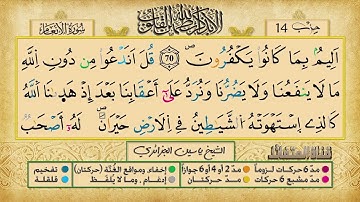 الا بذكر الله تطمئن القلوب
سورة الأنعام
حزب 14
اَلِيمٌۢ بِمَا كَانُواْ يَكْفُرُونَۖ 70 قُلَ اَنَدْعُواْ مِن دُونِ اِللَّهِ
مَا لَا يَنفَعُنَا وَلَا يَضُرُّنَا وَنُرَدُّ عَلَىٰٓ أَعْقَابِنَا بَعْدَ إِذْ هَدَيٰنَا اَللَّهُ
كَالذِے اِسْتَهْوَتْهُ اُلشَّيَٰطِينُ فِے اِلَارْضِ حَيْرَانَۖ لَهُۥٓ أَصْحَٰبٞ
الشيخ ياسين الجزائري
مدّ 6 حركات لزوماً
مدّ 2 أو 4 أو 6 جوازاً
إخفاء، ومواقع الغُنَّة (حركتان)
تفخيم
مدّ مشبع 6 حركات
مدّ حركتان
إدغام، وما لا يُلفَظ
قلقلة